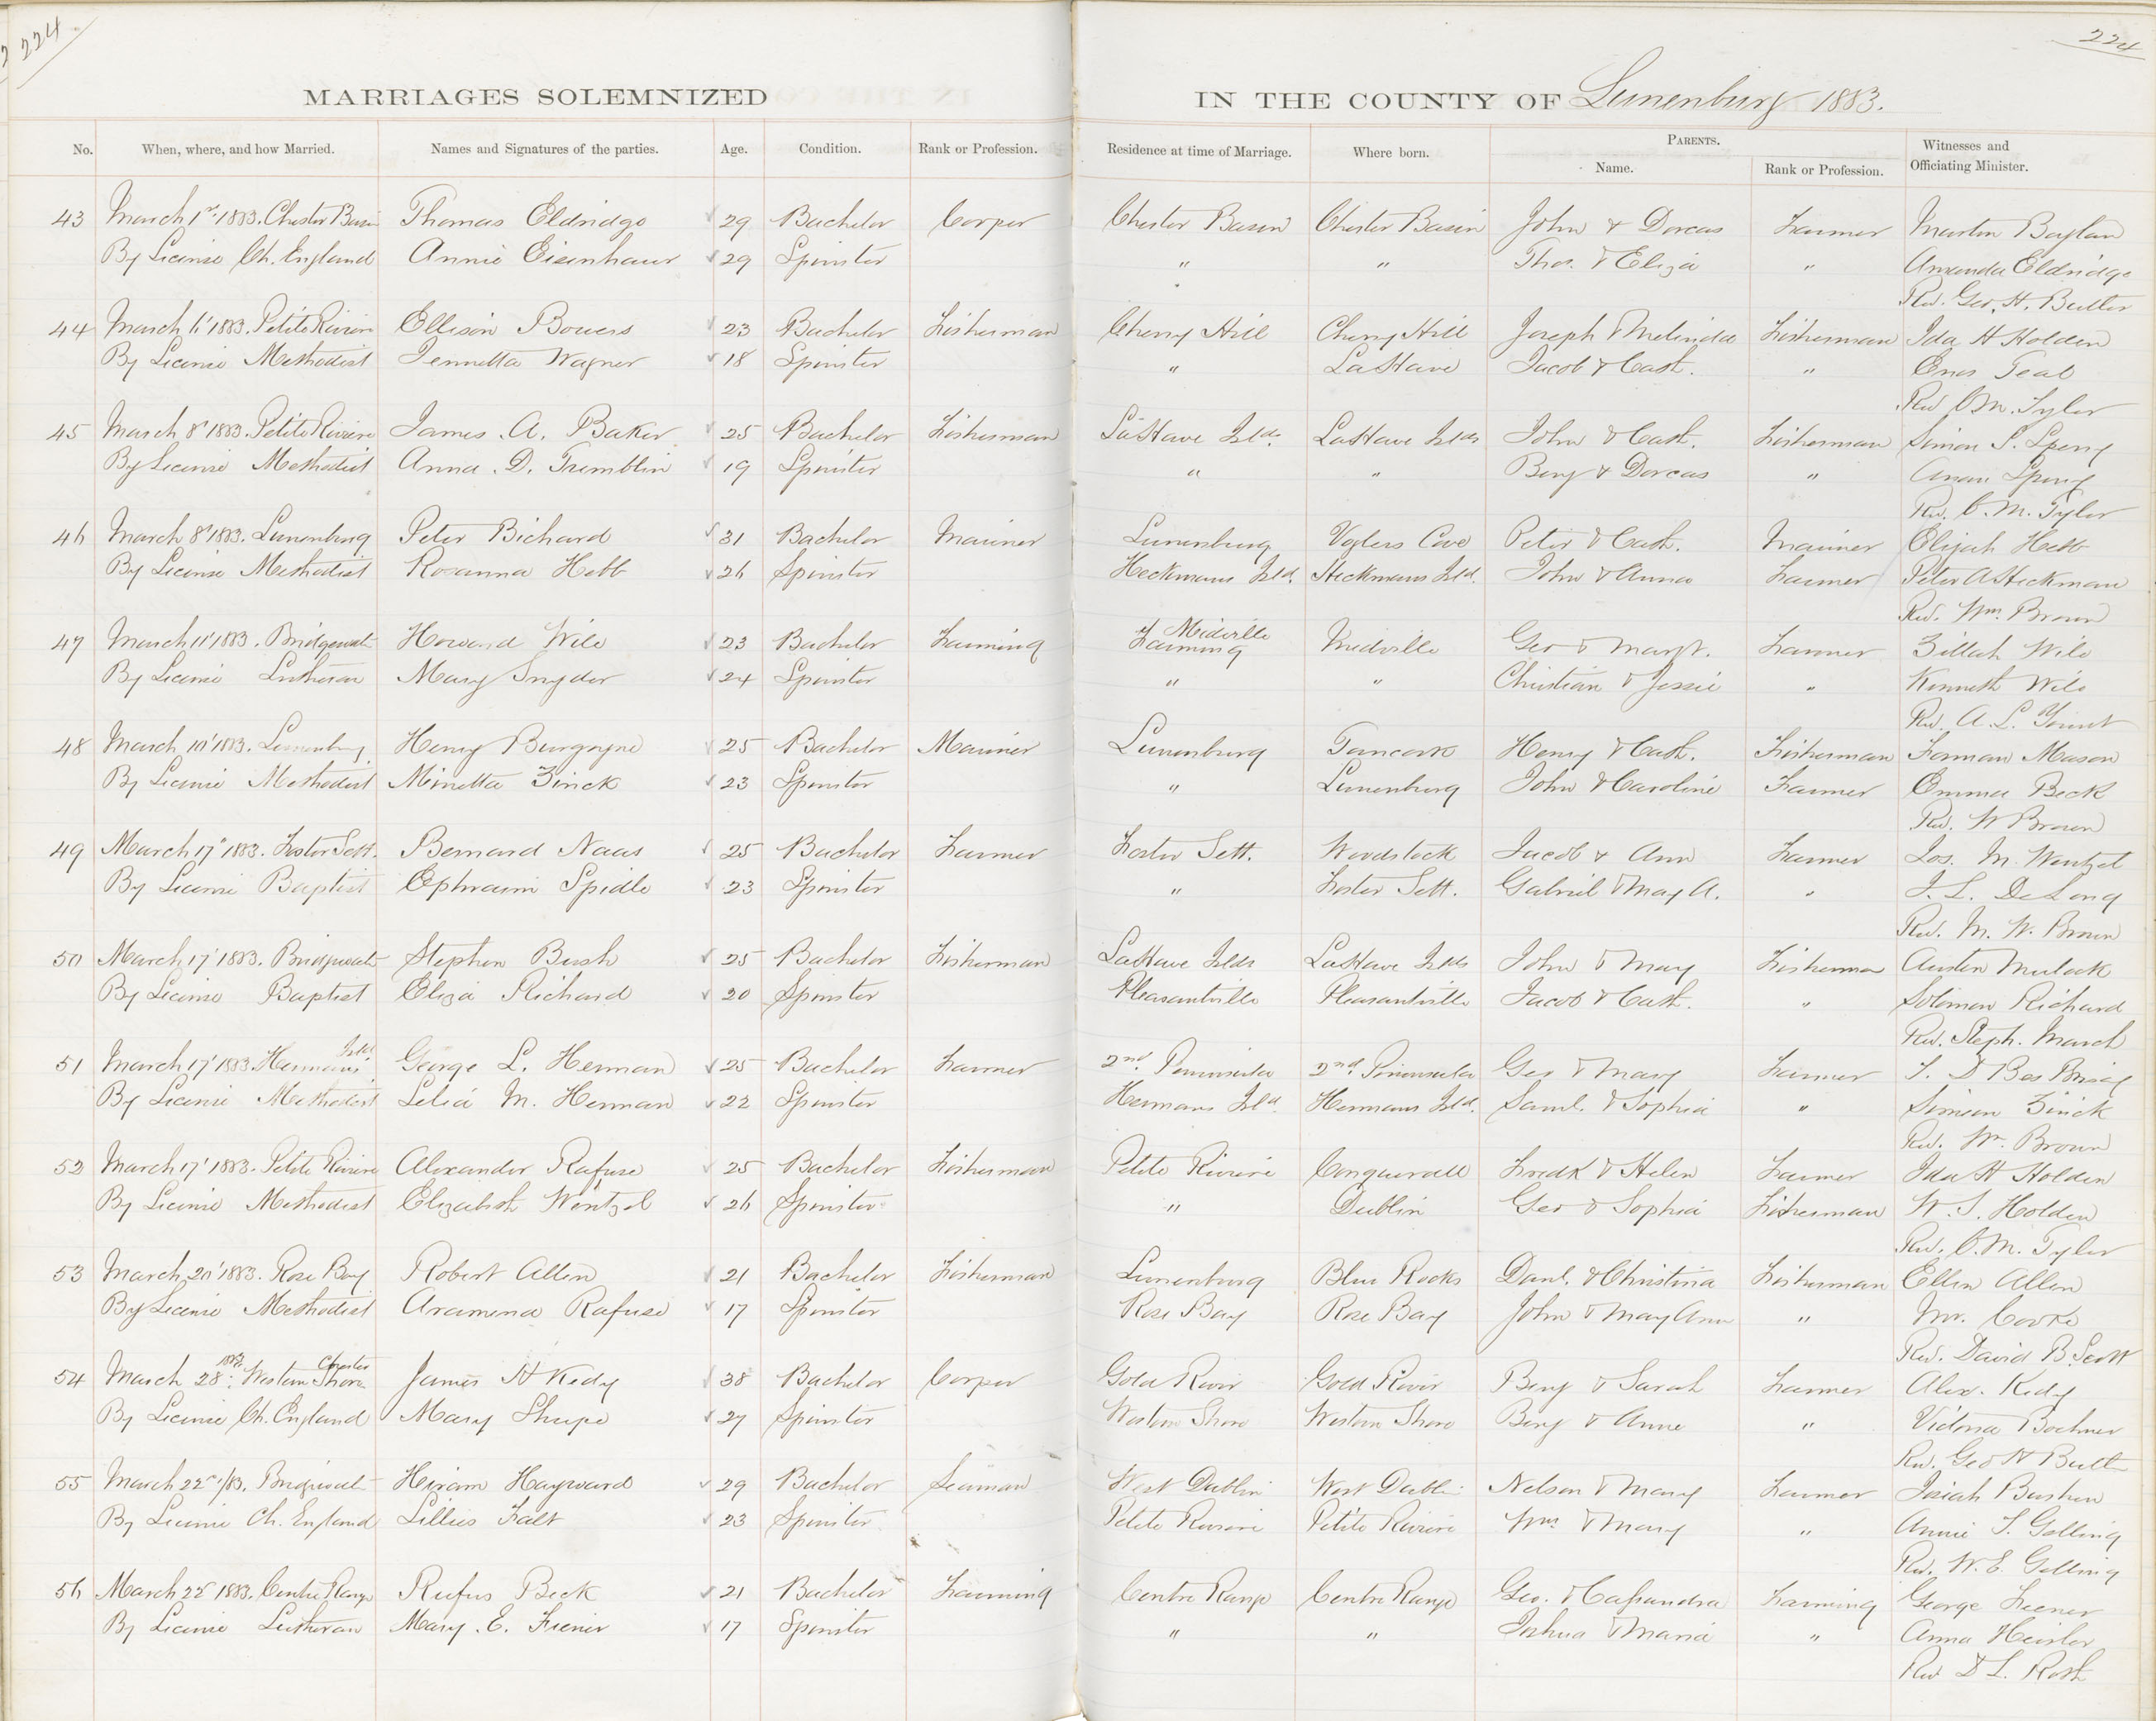 224
224
MARRIAGES SOLEMNIZED IN THE COUNTY OF Lunenburg 1883.
No. When, where, and how Married. Names and Signatures of the parties. Age. Condition. Rank or Profession. Residence at time of Marriage. Where born. PARENTS. Name. Rank or Profession. Witnesses and Officiating Minister.
43 March 1st 1883. Chester Basin Thomas Eldridge 29 Bachelor Cooper Chester Basin Chester Basin John & Dorcas Farmer Martin
By License Ch. England Annie Eisenhaur 29 Spinster " " Thos. & Eliza " Amanda Eldridge
Rev. Geo. H. Butler
44 March 6' 1883. Petite Riviere Ellison Bowers 23 Bachelor Fisherman Cherry Hill Cherry Hill Joseph & Melinda Fisherman Ida H Holden
By License Methodist Jennetta Wagner 18 Spinster " LaHave Jacob & Cath. " Enos Teal
Rev C.M. Tyler
45 March 8' 1883. Petite Riviere James. A. Baker 25 Bachelor Fisherman LaHave Islds. LaHave Islds John & Cath. Fisherman Simon S. Sperry
By License Methodist Anna. D. Tremblin 19 Spinster " " Benj & Dorcas " Sperry
Rev. C. M. Tyler
46 March 8' 1883. Lunenburg Peter Richard 31 Bachelor Mariner Lunenburg Voglers Cove Peter & Cath. Mariner Elijah Hebb
By License Methodist Rosanna Hebb 26 Spinster Heckmans Isld. Heckmans Isld. John & Anna Farmer Peter A Heckman
Rev. Wm. Brown
47 March 11' 1883. Bridgewater Howard Wile 23 Bachelor Farming Farming Midville Midville Geo & Margt. Farmer Zillah Wile
By License Lutheran Mary Snyder 24 Spinster " " Christian & Jessie " Kenneth Wile
Rev. A. L. Yount
48 March 10' 1883. Lunenburg Henry Burgoyne 25 Bachelor Mariner Lunenburg Tancook Henry & Cath. Fisherman Forman Mason
By License Methodist Minetta Zinck 23 Spinster " Lunenburg John & Caroline Farmer Emma Beck
Rev. W Brown
49 March 17" 1883. Foster Sett. Bernard Naas 25 Bachelor Farmer Foster Sett. Woodstock Jacob & Ann Farmer Jos. M. Wentzel
By License Baptist Ephraim Spidle 23 Spinster " Foster Sett. Gabriel & May A. " J. L. DeLong
Rev. M. W. Brown
50 March 17' 1883. Bridgewater Stephen Bush 25 Bachelor Fisherman LaHave Islds LaHave Islds John & Mary Fisherman Austen Mulock
By License Baptist Eliza Richard 20 Spinster Pleasantville Pleasantville Jacob & Cath. " Solomon Richard
Rev. Steph. March
51 March 17' 1883. Hermans Isld George L. Herman 25 Bachelor Farmer 2nd. Peninsula 2nd. Peninsula Geo & Mary Farmer S. D Bes
By License Methodist Lelia M. Herman 22 Spinster Hermans Isld. Hermans Isld. Saml. & Sophia " Simeon Zinck
Rev. Wm. Brown
52 March 17' 1883. Petite Riviere Alexander Rafuse 25 Bachelor Fisherman Petite Riviere Conquerall Fredk & Helen Farmer Ida H Holden
By License Methodist Elizabeth Wentzel 26 Spinster " Dublin Geo & Sophia Fisherman W. S. Holden
Rev. C. M. Tyler
53 March 20' 1883. Rose Bay Robert Allen 21 Bachelor Fisherman Lunenburg Blue Rocks Danl. & Christina Fisherman Ellen Allen
By License Methodist Aramena Rafuse 17 Spinster Rose Bay Rose Bay John & May Ann " Mr. Cooke
Rev. David B. Scott
54 March 28' 1883. Western Shore Chester James H Kedy 38 Bachelor Cooper Gold River Gold River Benj & Sarah Farmer Alex. Kedy
By License Ch. England Mary Shupe 27 Spinster Western Shore Western Shore Benj & Anne " Victoria Bochner
Rev. Geo H Butler
55 March 22nd /83. Bridgewater Hiram Hayward 29 Bachelor Seaman West Dublin West Dublin Nelson & Mary Farmer Josiah Bushen
By License Ch. England Lillies Falt 23 Spinster Petite Riviere Petite Riviere Wm. & Mary " Annie S. Gelling
Rev. W. E. Gelling
56 March 22' 1883. Centre Range Rufus Beck 21 Bachelor Farming Centre Range Centre Range Geo. & Cassandra Farming George Feener
By License Lutheran Mary. E. Feener 17 Spinster " " Joshua & Maria " Anna Heisler
Rev D L. Roth